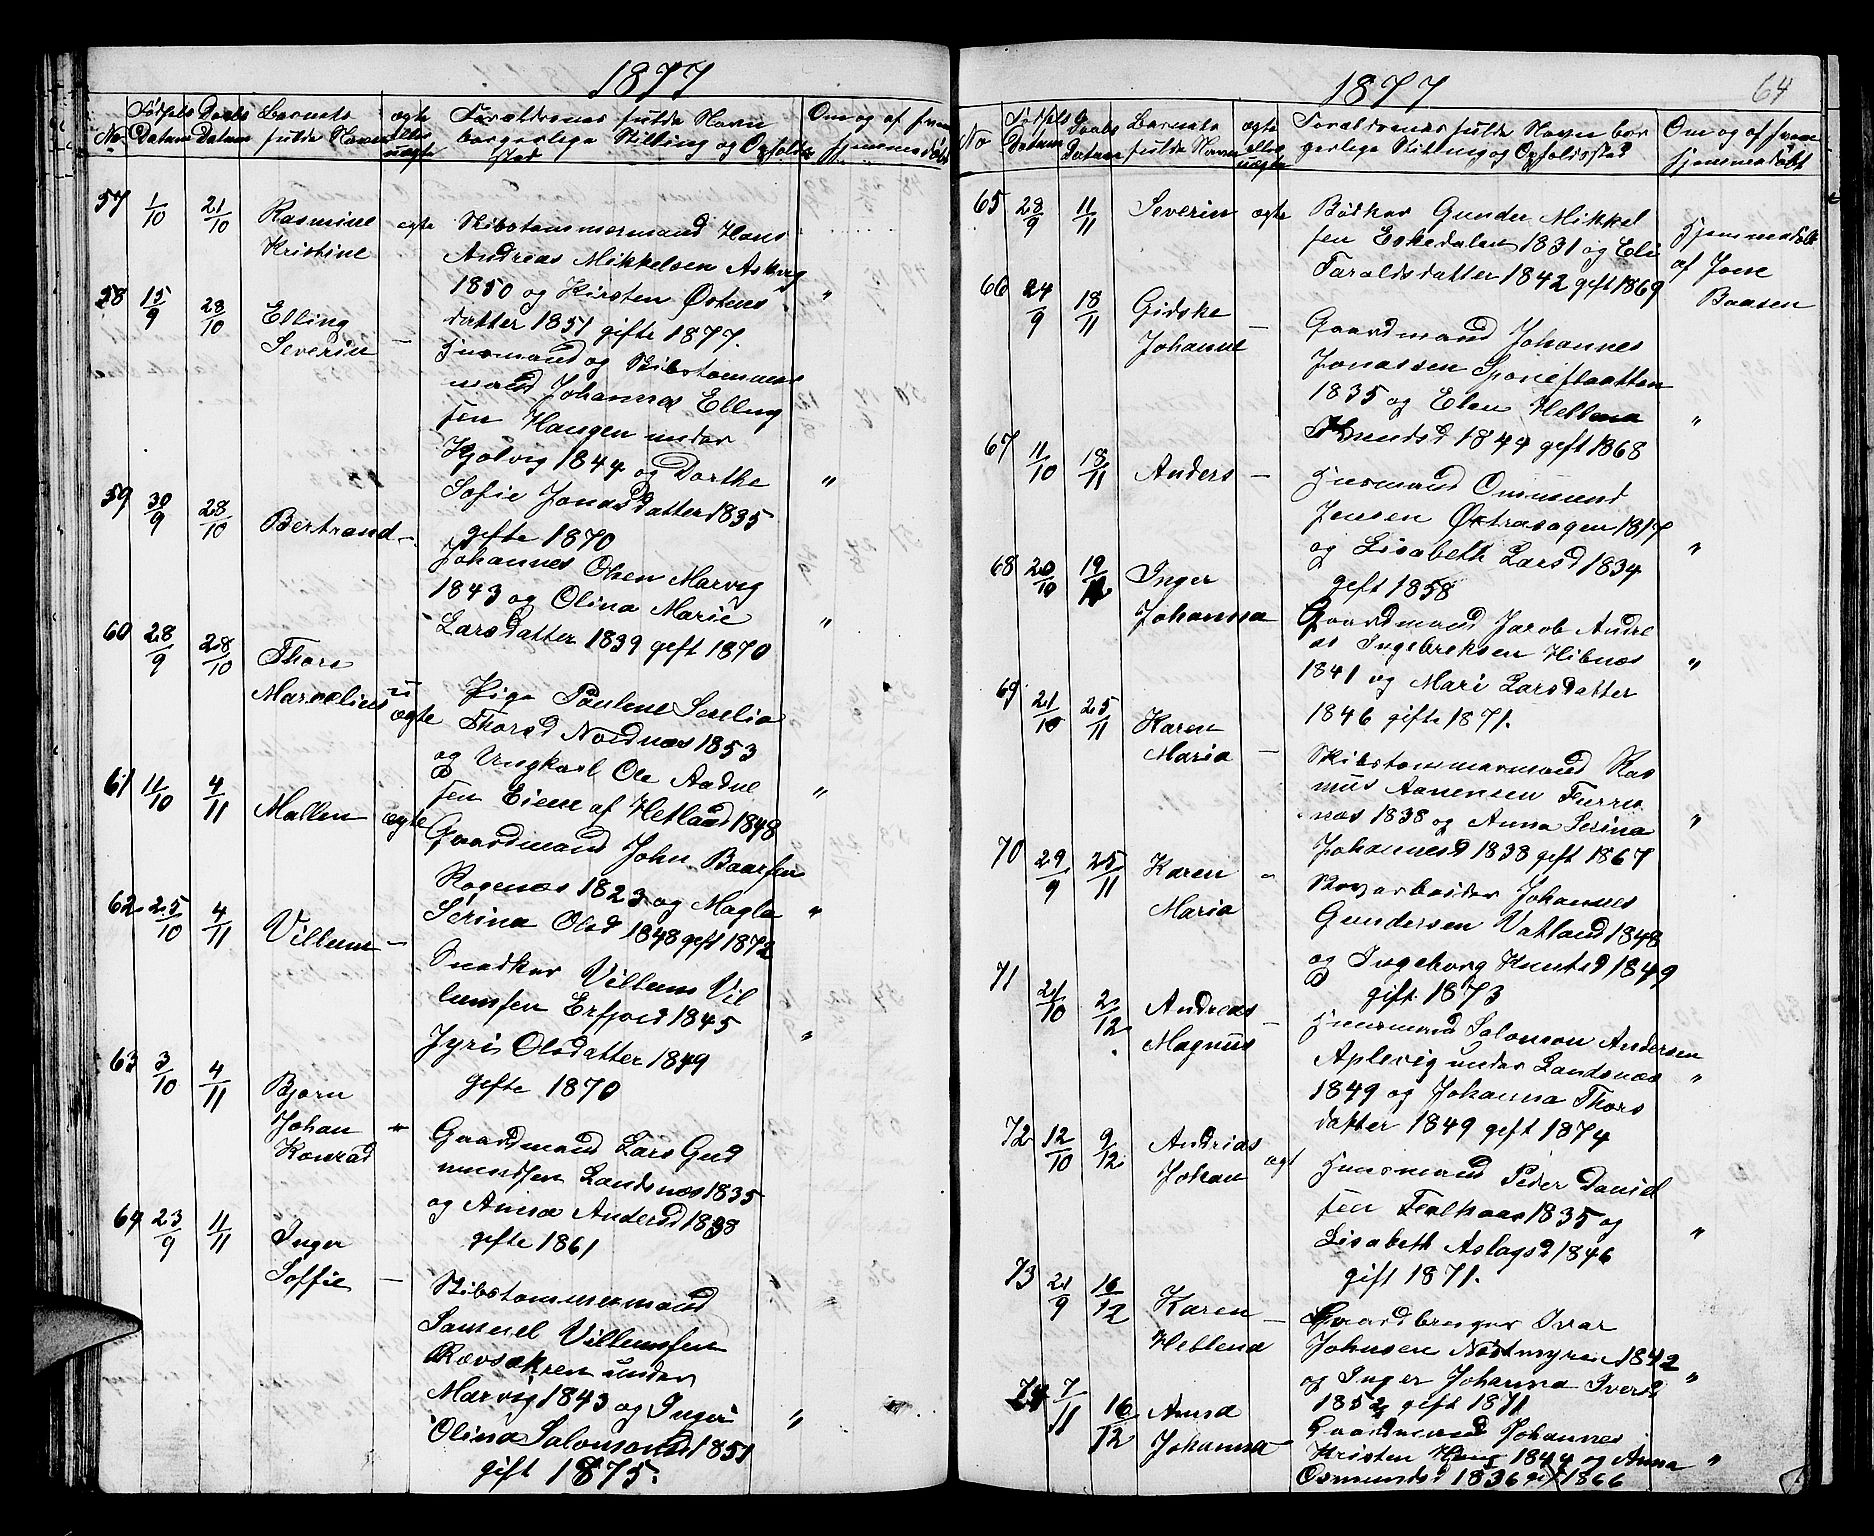 1877
No
Fødsels Datum
Daabs Datum
Barnets fulde Navn
ægte eller uægte
Forældrenes fulde Navn
borgerlige Stilling og Opholds
sted
Om og af hvem
hjemmedøbt
57 1/10 21/10 Rasmine
Kristine
ægte
Skibstømmermand Hans
Andreas Mikkelsen Askvig
1850 og Kirsten Østens
datter 1851 gifte 1877.
"
58 15/9 28/10 Elling
Severin -
Husmand og Skibstømmer
mand Johannes Elling
sen Haugen under
Kjølvig 1844 og Dorthe
Sofie Jonasdatter 1835
gefte 1870
"
59 30/9 28/10 Bertrand -
Johannes Olsen Marvig
1843 og Olina Marie
Larsdatter 1839 geft 1870
"
60 28/9 28/10 Thore
Marselius
u
ægte
Pige Pauline Serelia
Thorsd Nordnæs 1853
og Ungkarl Ole Aadne
sen Eiene af Hetland 1848
"
61 11/10 4/11 Mallen ægte
Gaardmand John Baarsen
Røgenæs 1823 og Magla
Serina Olsd 1848 geft 1872
"
62 25/10 4/11 Villum -
Snedker Villum Vil
lumsen Erfjord 1845
Jyri Olsdatter 1849
gefte 1870
"
63 3/10 4/11 Bjørn
Johan
Konrad
"
Gaardmand Lars Gud
mundsen Landsnæs 1835
og Anna Andersd 1838
gefte 1861
64 23/9 11/11 Inger
Soffie -
Skibstømmermand
Samuel Villumsen
Rævsåkren under
Marvig 1843 og Inger
Olina Salomonsd 1851
gift 1875.
"
1877
64
No
Fødsels Datum
Daabs Datum
Barnets fulde Navn
ægte eller uægte
Forældrenes fulde Navn bor
gerlige Stilling og Opholdssted
Om og af hvem
hjemmedøbt
65 28/9 11/11 Severin ægte
Bødker Gunder Mikkel
sen Eskedalen 1831 og Eli
Taraldsdatter 1842 geft 1869
Hjemmedøbt
af Jone
Baasen
66 24/9 18/11 Gidske
Johanne -
Gaardmand Johannes
Jonassen Sponeflaatten
1835 og Elen Hellena
1844 geft 1868
"
67 11/10 18/11 Anders -
Husmand Ommund
Jensen Østraaagen 1817
og Lisabeth Larsd 1834
geft 1858
"
68 20/10 19/11 Inger
Johanna -
Gaardmand Jacob Andre
as Ingebretsen Hibnæs
1841 og Mari Larsdatter
1846 gifte 1871.
"
69 21/10 25/11 Karen
Maria -
Skibstømmermand Ras
mus Aanensen Furre
næs 1838 og Anna Serina
Johannesd 1838 geft 1867
"
70 29/9 25/11 Karen
Maria
"
Skovarbeider Johannes
Gundersen Vatland 1848
og Ingeborg Knutsd 1849
gift 1873
71 21/10 2/12 Andreas
Magnus -
Husmand Salomon Andersen
Aplevig under Landsnæs
1849 og Johanna Thors
datter 1849 geft 1874
"
72 12/10 9/12 Andrias
Johan
ægt
Husmand Peder Daniel
sen Fælhaas 1835 og
Lisabeth Aslagsd 1846
gift 1871.
"
73 21/9 16/12 Karen
Hellena -
Gaardbruger Ivar
Johnsen Nøstmyren 1842
og Inger Johanna Ivers
1852 geft 1871
"
74 7/11 16/12 Anna
Johanna -
Gaardmand Johannes
Kristen Haug 1844 og Anna
Osmundsd 1836 geft 1866
"